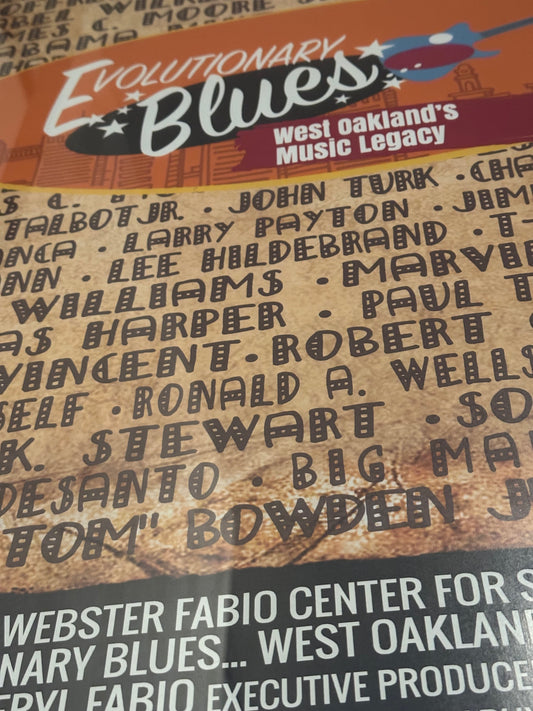 WILKE
JAMES C. MOORE
ABAMA
EVOLUTIONARY
Blues...
West Oakland's
Music Legacy
TALBOT JR. · JOHN TURK · CHA
LARRY PAYTON · JIM
NN · LEE HILDEBRAND · T-
WILLIAMS · MARVI
AS HARPER · PAUL T
VINCENT · ROBERT
SELF · RONALD A. WELLS
K. STEWART · SO
DESANTO · BIG MA
TOM" BOWDEN J
WEBSTER FABIO CENTER FOR S
NARY BLUES... WEST OAKLAN
ERYL FABIO EXECUTIVE PRODUCE